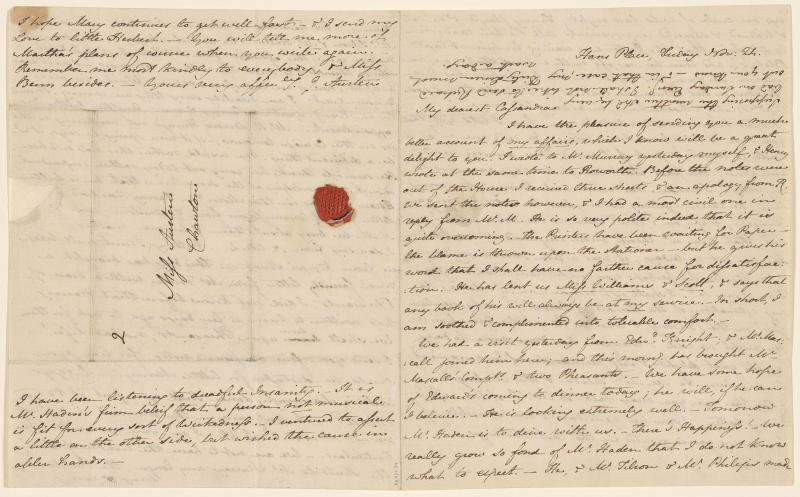 I hope Mary continues to get well fast - & I send my
Love to little Herbert. - You will tell me more of
Martha's plans of course when you write again.
Remember me most kindly to everybody, & Miss
Benn besides. - Yours very affec:ly J. Austen
Miss Austen
Chawton
2
I have been listening to dreadful Insanity. - It is
Mr Haden's firm beleif that a person not musical
is fit for every sort of Wickedness. - I ventured to assert
a little on the other side, but wished the cause in
abler hands. -
Hans Place, Friday Nov: 24.
My dearest Cassandra
I have the pleasure of sending you a much
better account of my affairs, which I know will be a great
delight to you. I wrote to Mr Murray yesterday myself, & Henry
wrote at the same time to Roworth. Before the notes were
out of the House I received three sheets, & an apology from R.
We sent the notes however, & I had a most civil one in
reply from Mr M. He is so very polite indeed, that it is
quite overcoming. - The Printers have been waiting for Paper -
the blame is thrown upon the Stationer - but he gives his
word that I shall have no farther cause for dissatisfac-
tion. - He has lent us Miss Williams & Scott, & says that
any book of his will always be at my service. - In short, I
am soothed & complimented into tolerable comfort. -
We had a visit yesterday from Edwd Knight; & Mr Mas-
call joined him here; and this morng has brought Mr
Mascall's Compts & two Pheasants. - We have some hope
of Edward's coming to dinner today; he will, if he can
I beleive. - He is looking extremely well. - Tomorrow
Mr Haden is to dine with us. - There's Happiness! - We
really grow so fond of Mr Haden that I do not know
what to expect. - He, & Mr Tilson & Mr Philips made